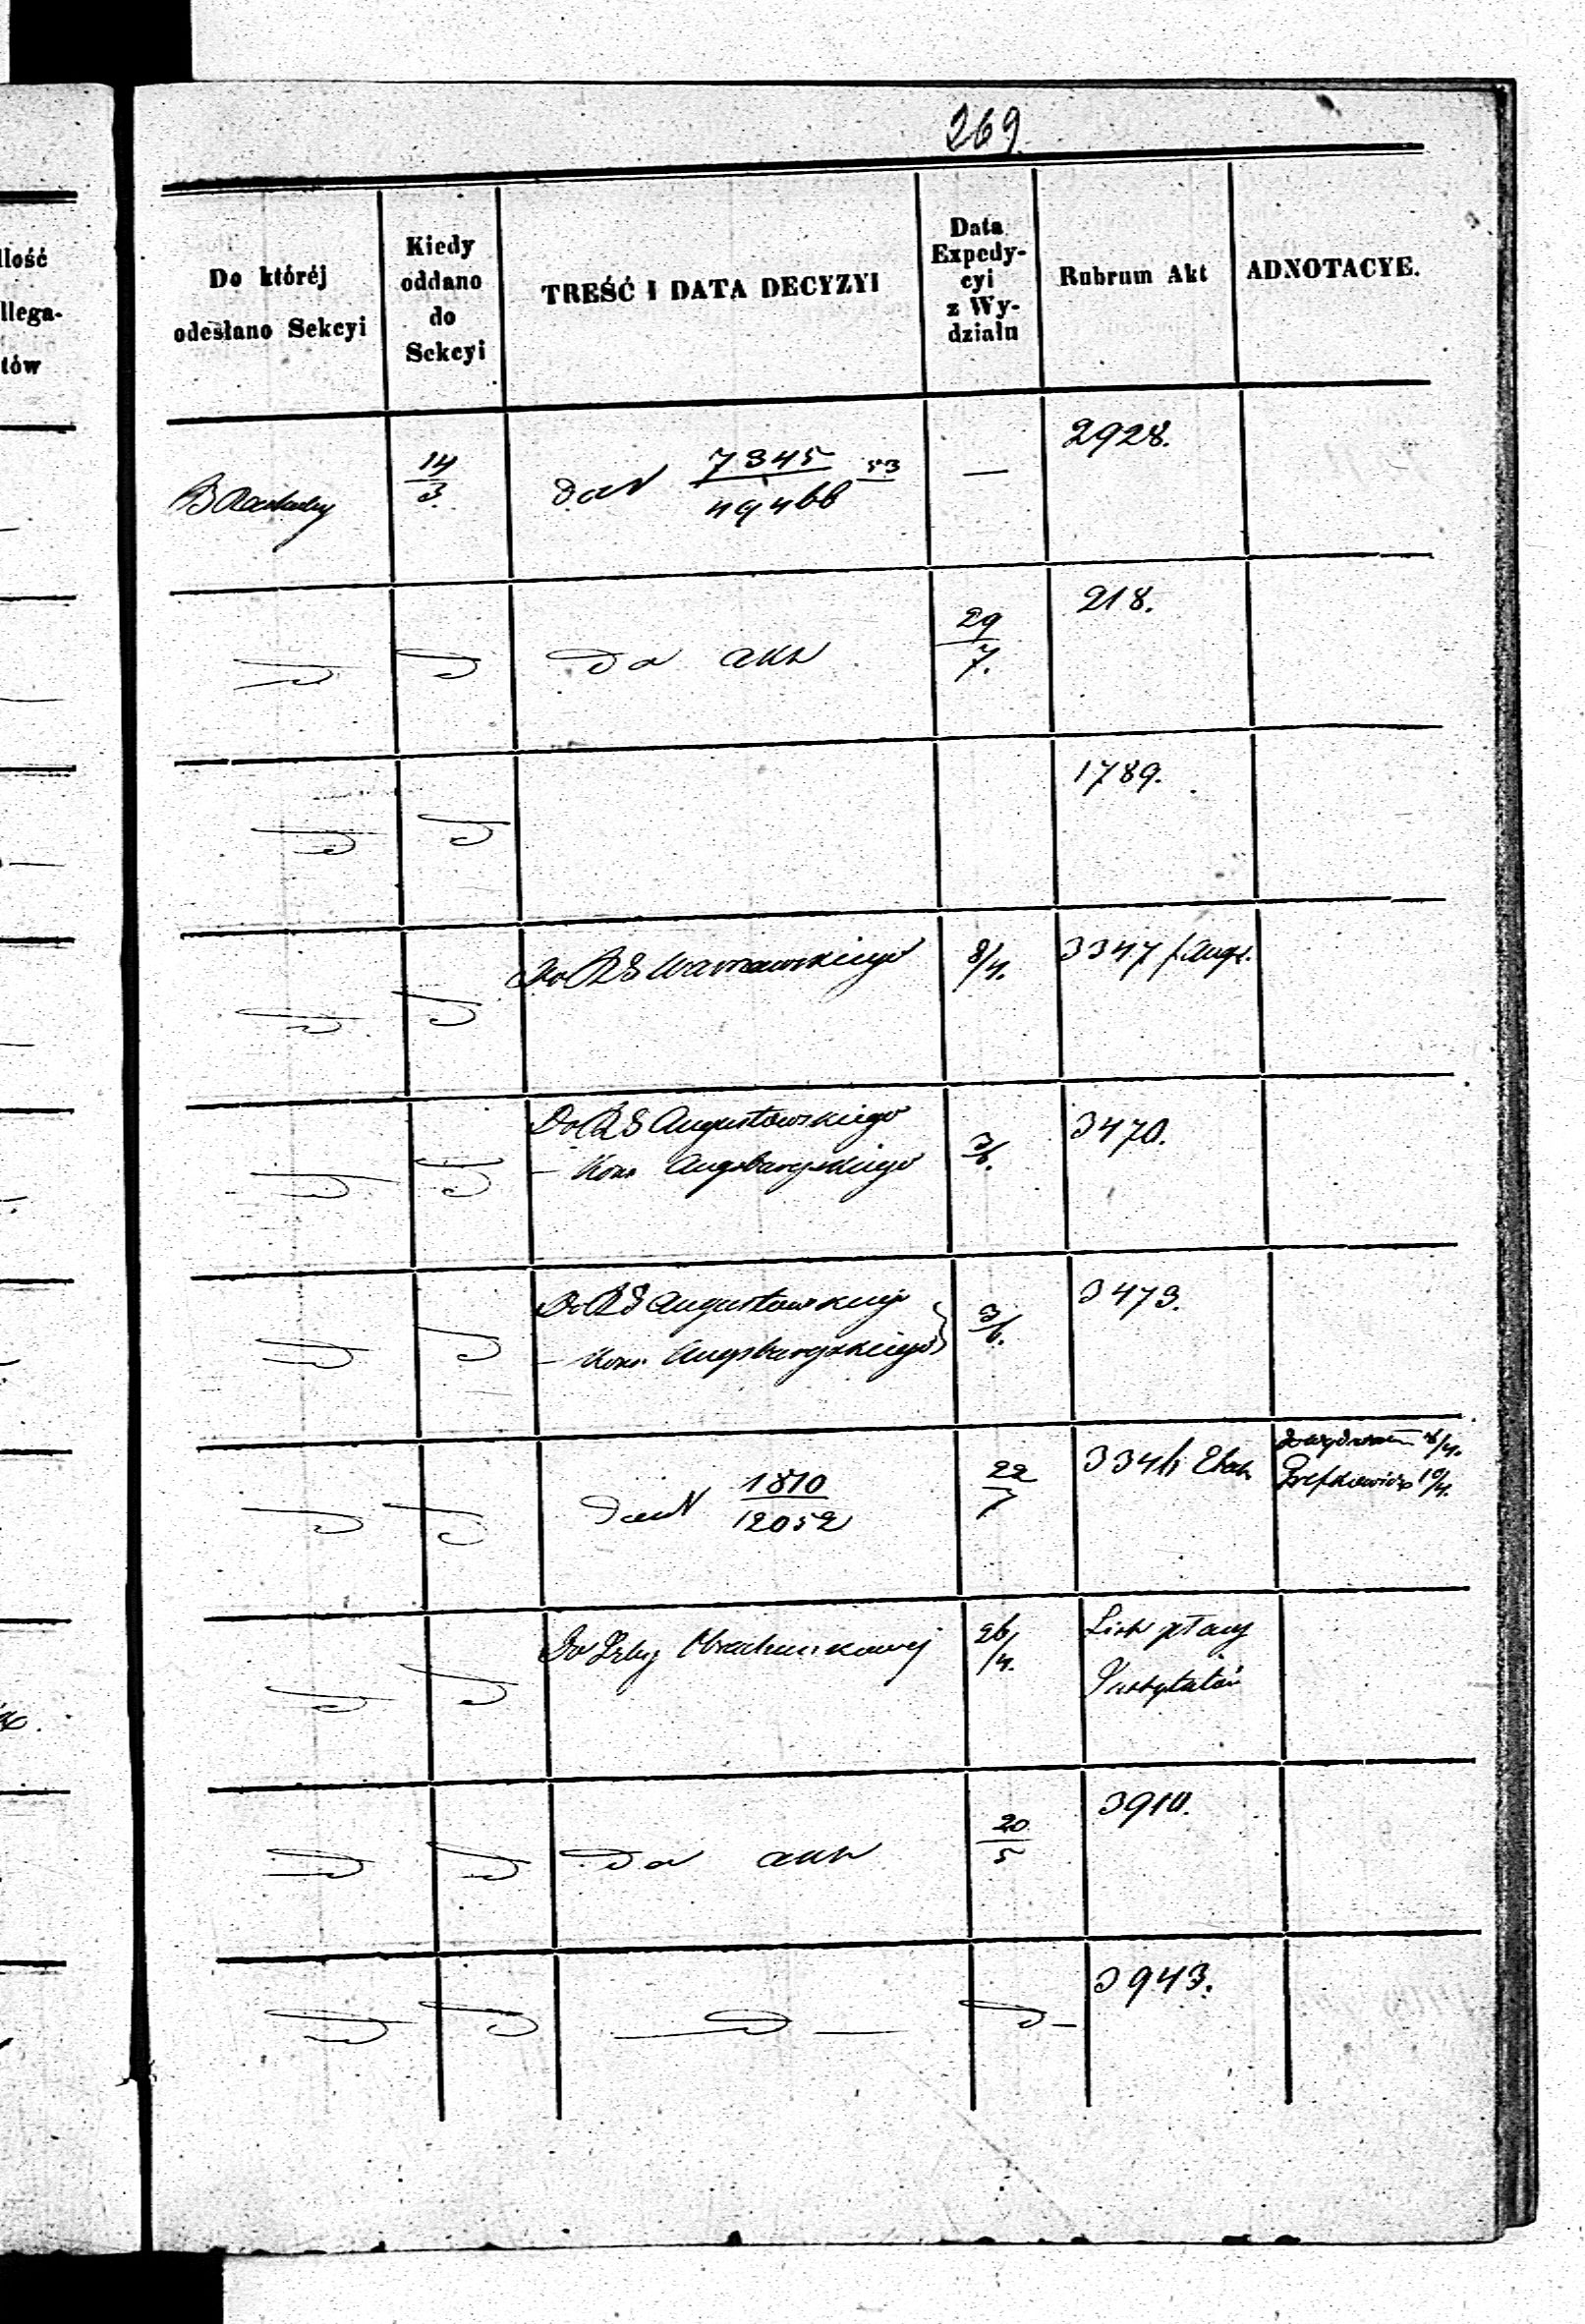 269.
Ilość
llega-
tów
Do któréj
odesłano Sekcyi
Kiedy
oddano
do
Sekcyi
TREŚĆ I DATA DECYZYI
Data
Expedy-
cyi
z Wy-
działu
Rubrum Akt
ADNOTACYE.
14/3. 7345/49466 53 — 2928.
Do akt 29/7. 218.
1789.
Do RG Warszawskiego 8/4. 3347
Do RG Augustowskiego 3/6. 3470.
— Kons Augsburgskiego
Do RG Augustowskiego 3/6. 3473.
— Kons Augsburgskiego
1810/12052 22/7 3346 Etat 10/4.
Do Izby Obrachunkowej 26/4. List
Instytutów
Do akt 20/5 3910.
3943.